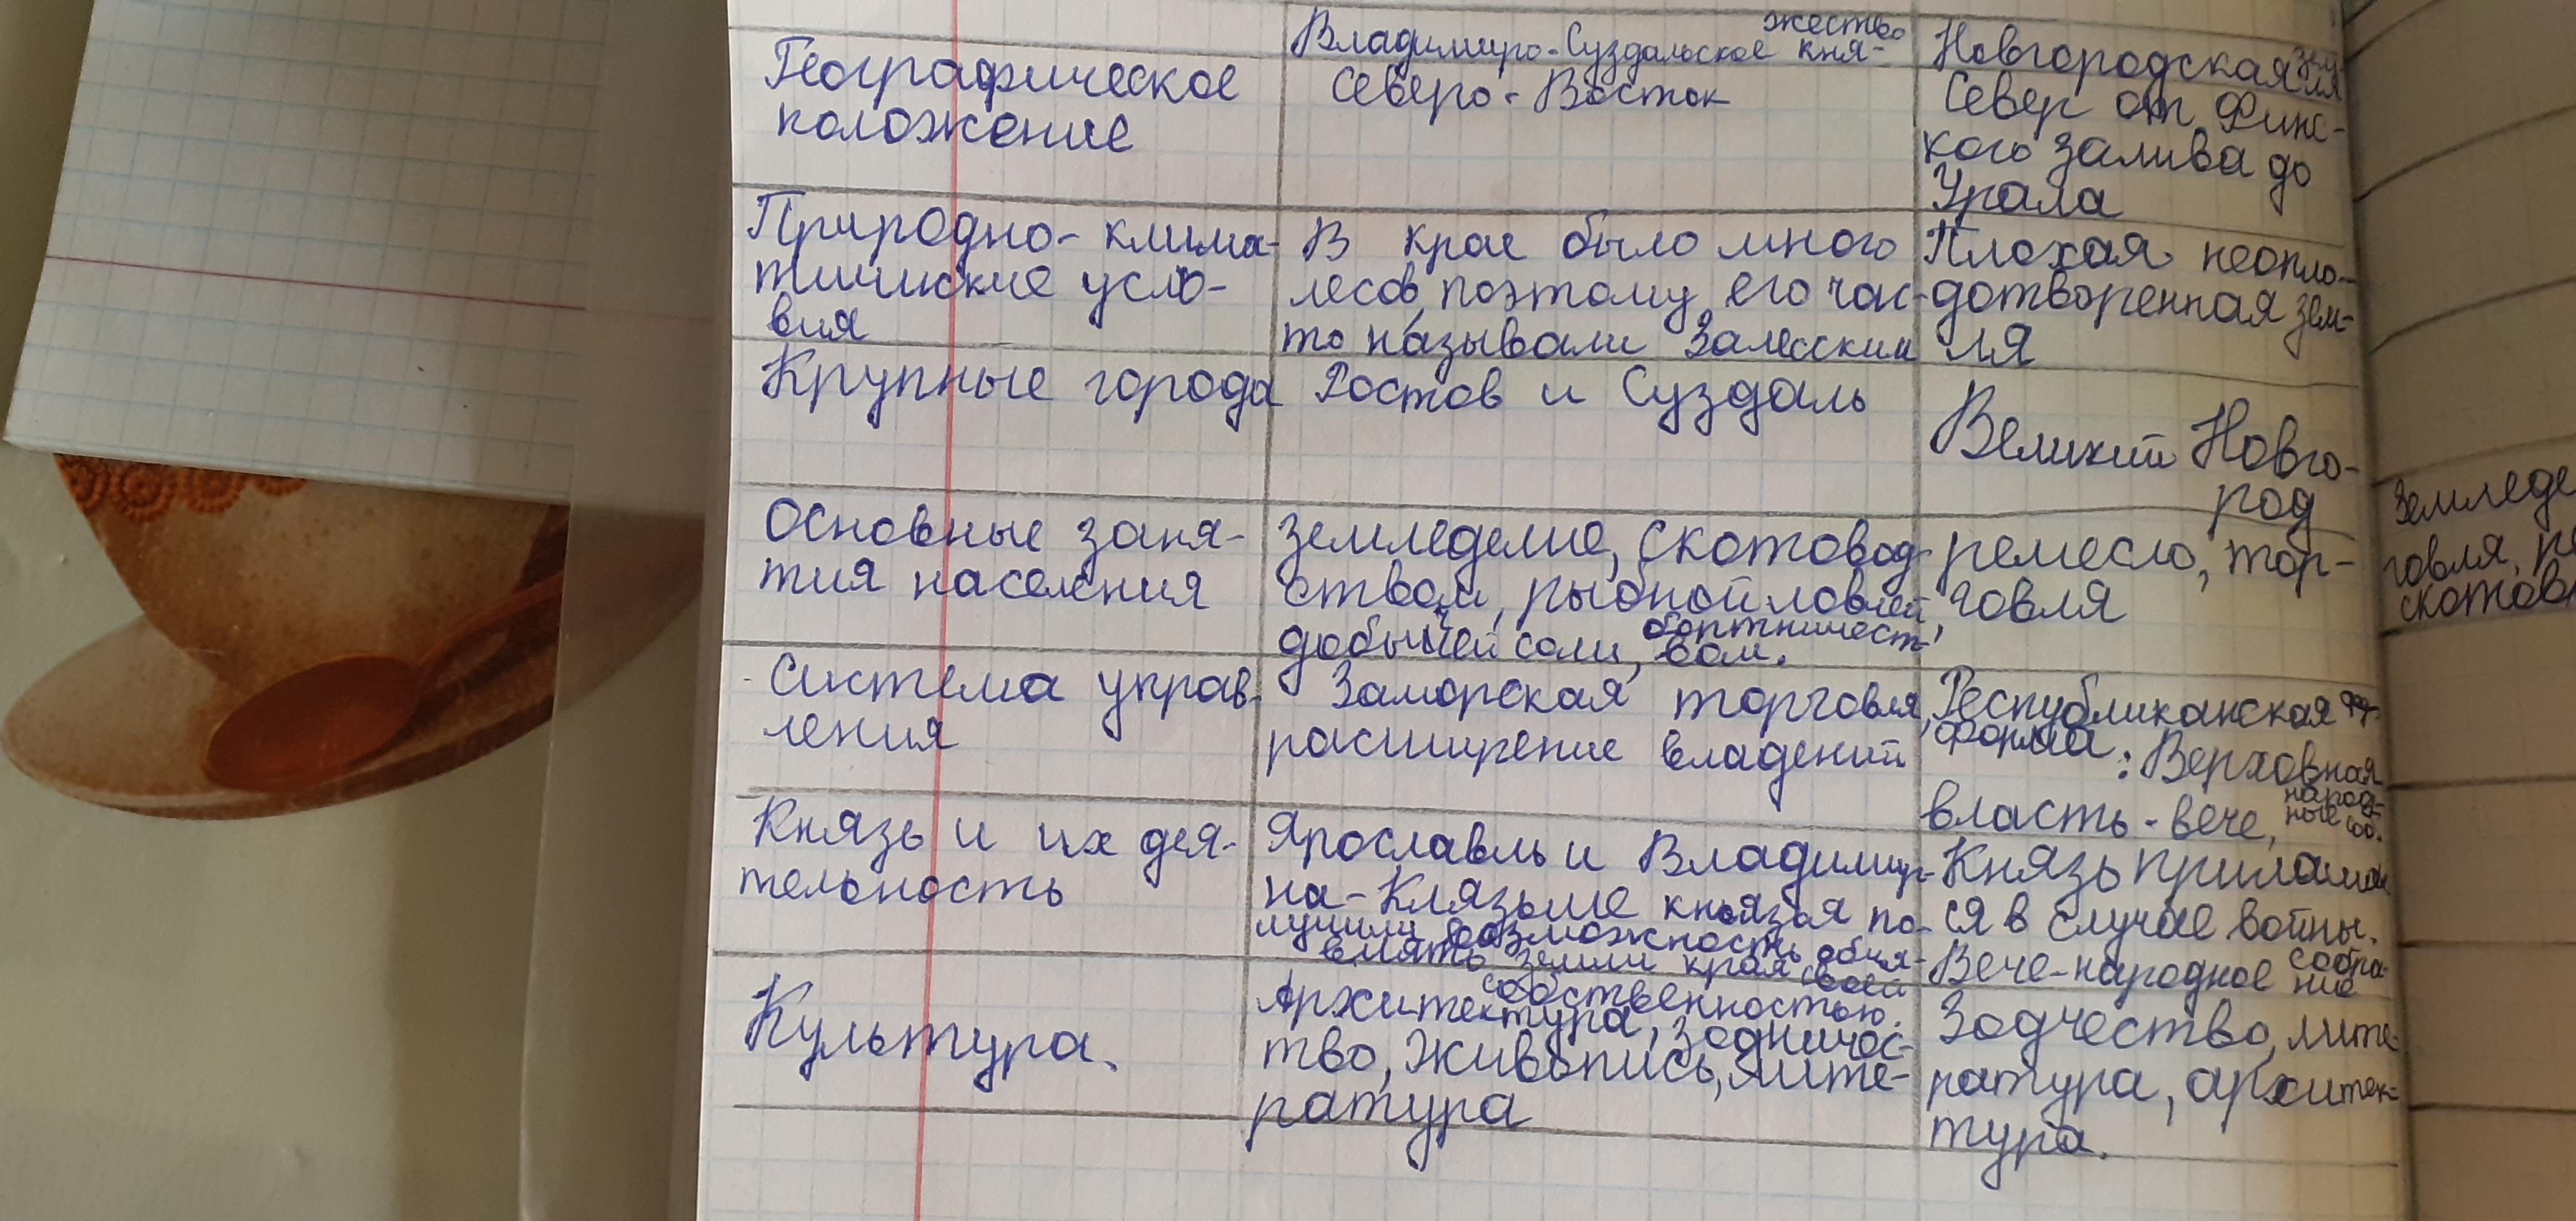 Владимиро-Суздальское кня-
жество
Новгородская зем-
ля
Географическое
положение
Северо-Восток
Север от Финс-
кого залива до
Урала
Природно-клима-
тичиские усло-
вия
В крае было много
лесов, поэтому его час-
то называли Залесским
Плохая неопло-
дотворенная зем-
ля
Крупные города
Ростов и Суздаль
Великий Новго-
род
Основные заня-
тия населения
земледелие, скотовод
ством, рыбной ловлей,
добычей соли, бортничест-
вом.
ремесло, тор-
говля
Земледе
говля, ре
скотов
Система управ-
ления
Заморская торговля,
расширение владений
Республиканская
форма: Верховная
власть - вече, народ-
ные соб.
Князь и их дея-
тельность
Ярославль и Владимир-
на-Клязьме князья по-
лучили возможность объя-
влять земли края своей
собственностью.
Князь приглашал
ся в случае войны.
Вече-народное собра-
ние
Культура.
Архитектура, зодничес-
тво, живопись, лите-
ратура
Зодчество, лите-
ратура, архитек-
тура.